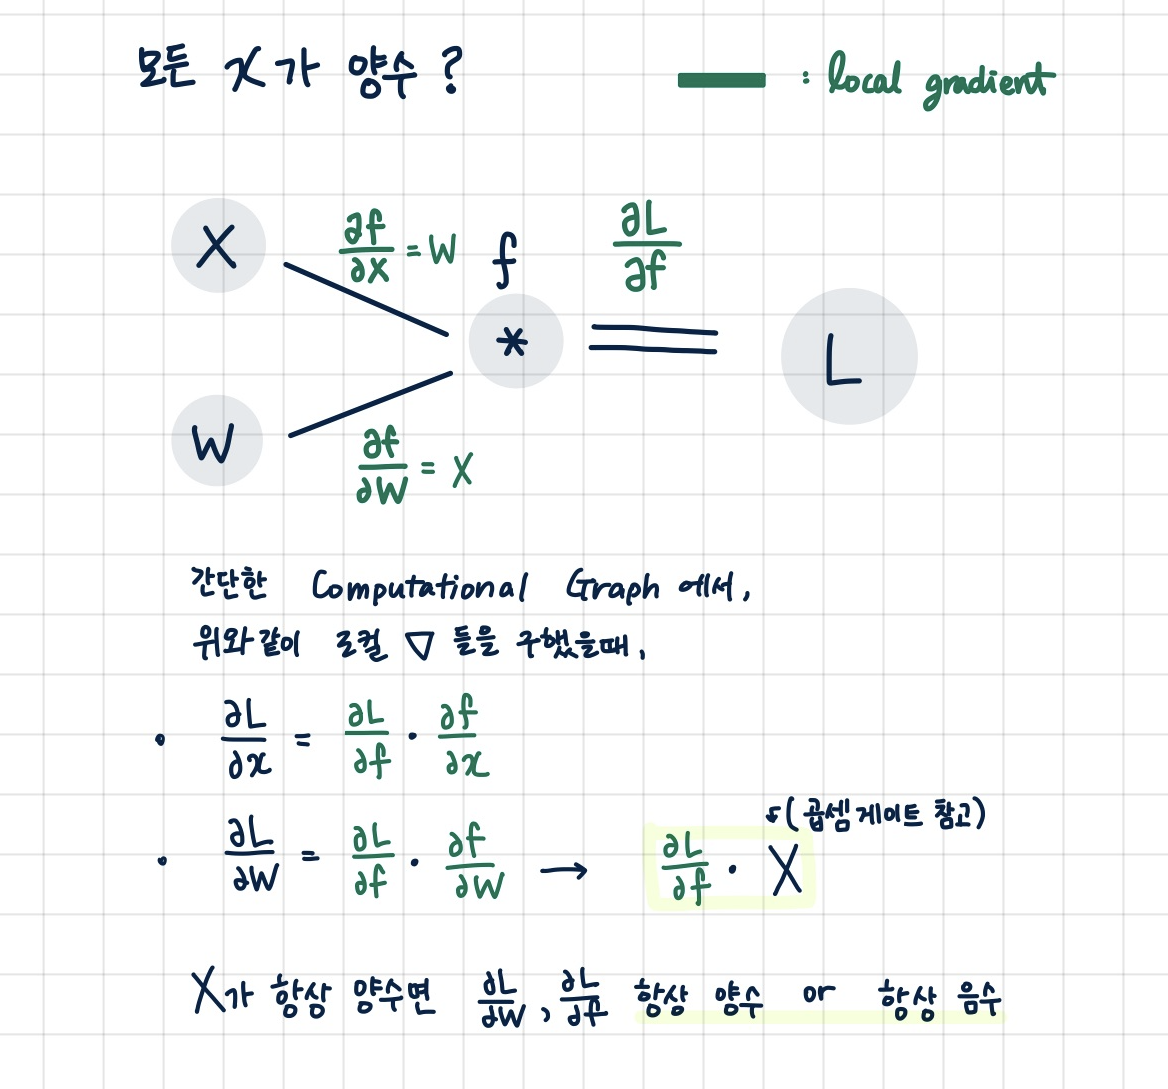 모든 X가 양수?
: local gradient
X
∂f/∂X = W
f
∂L/∂f
*
L
W
∂f/∂W = X
간단한 Computational Graph 에서,
위와 같이 로컬 ▽ 들을 구했을때,
• ∂L/∂x = ∂L/∂f · ∂f/∂x
(곱셈 게이트 참고)
• ∂L/∂W = ∂L/∂f · ∂f/∂W → ∂L/∂f · X
X가 항상 양수면 ∂L/∂W, ∂L/∂f 항상 양수 or 항상 음수